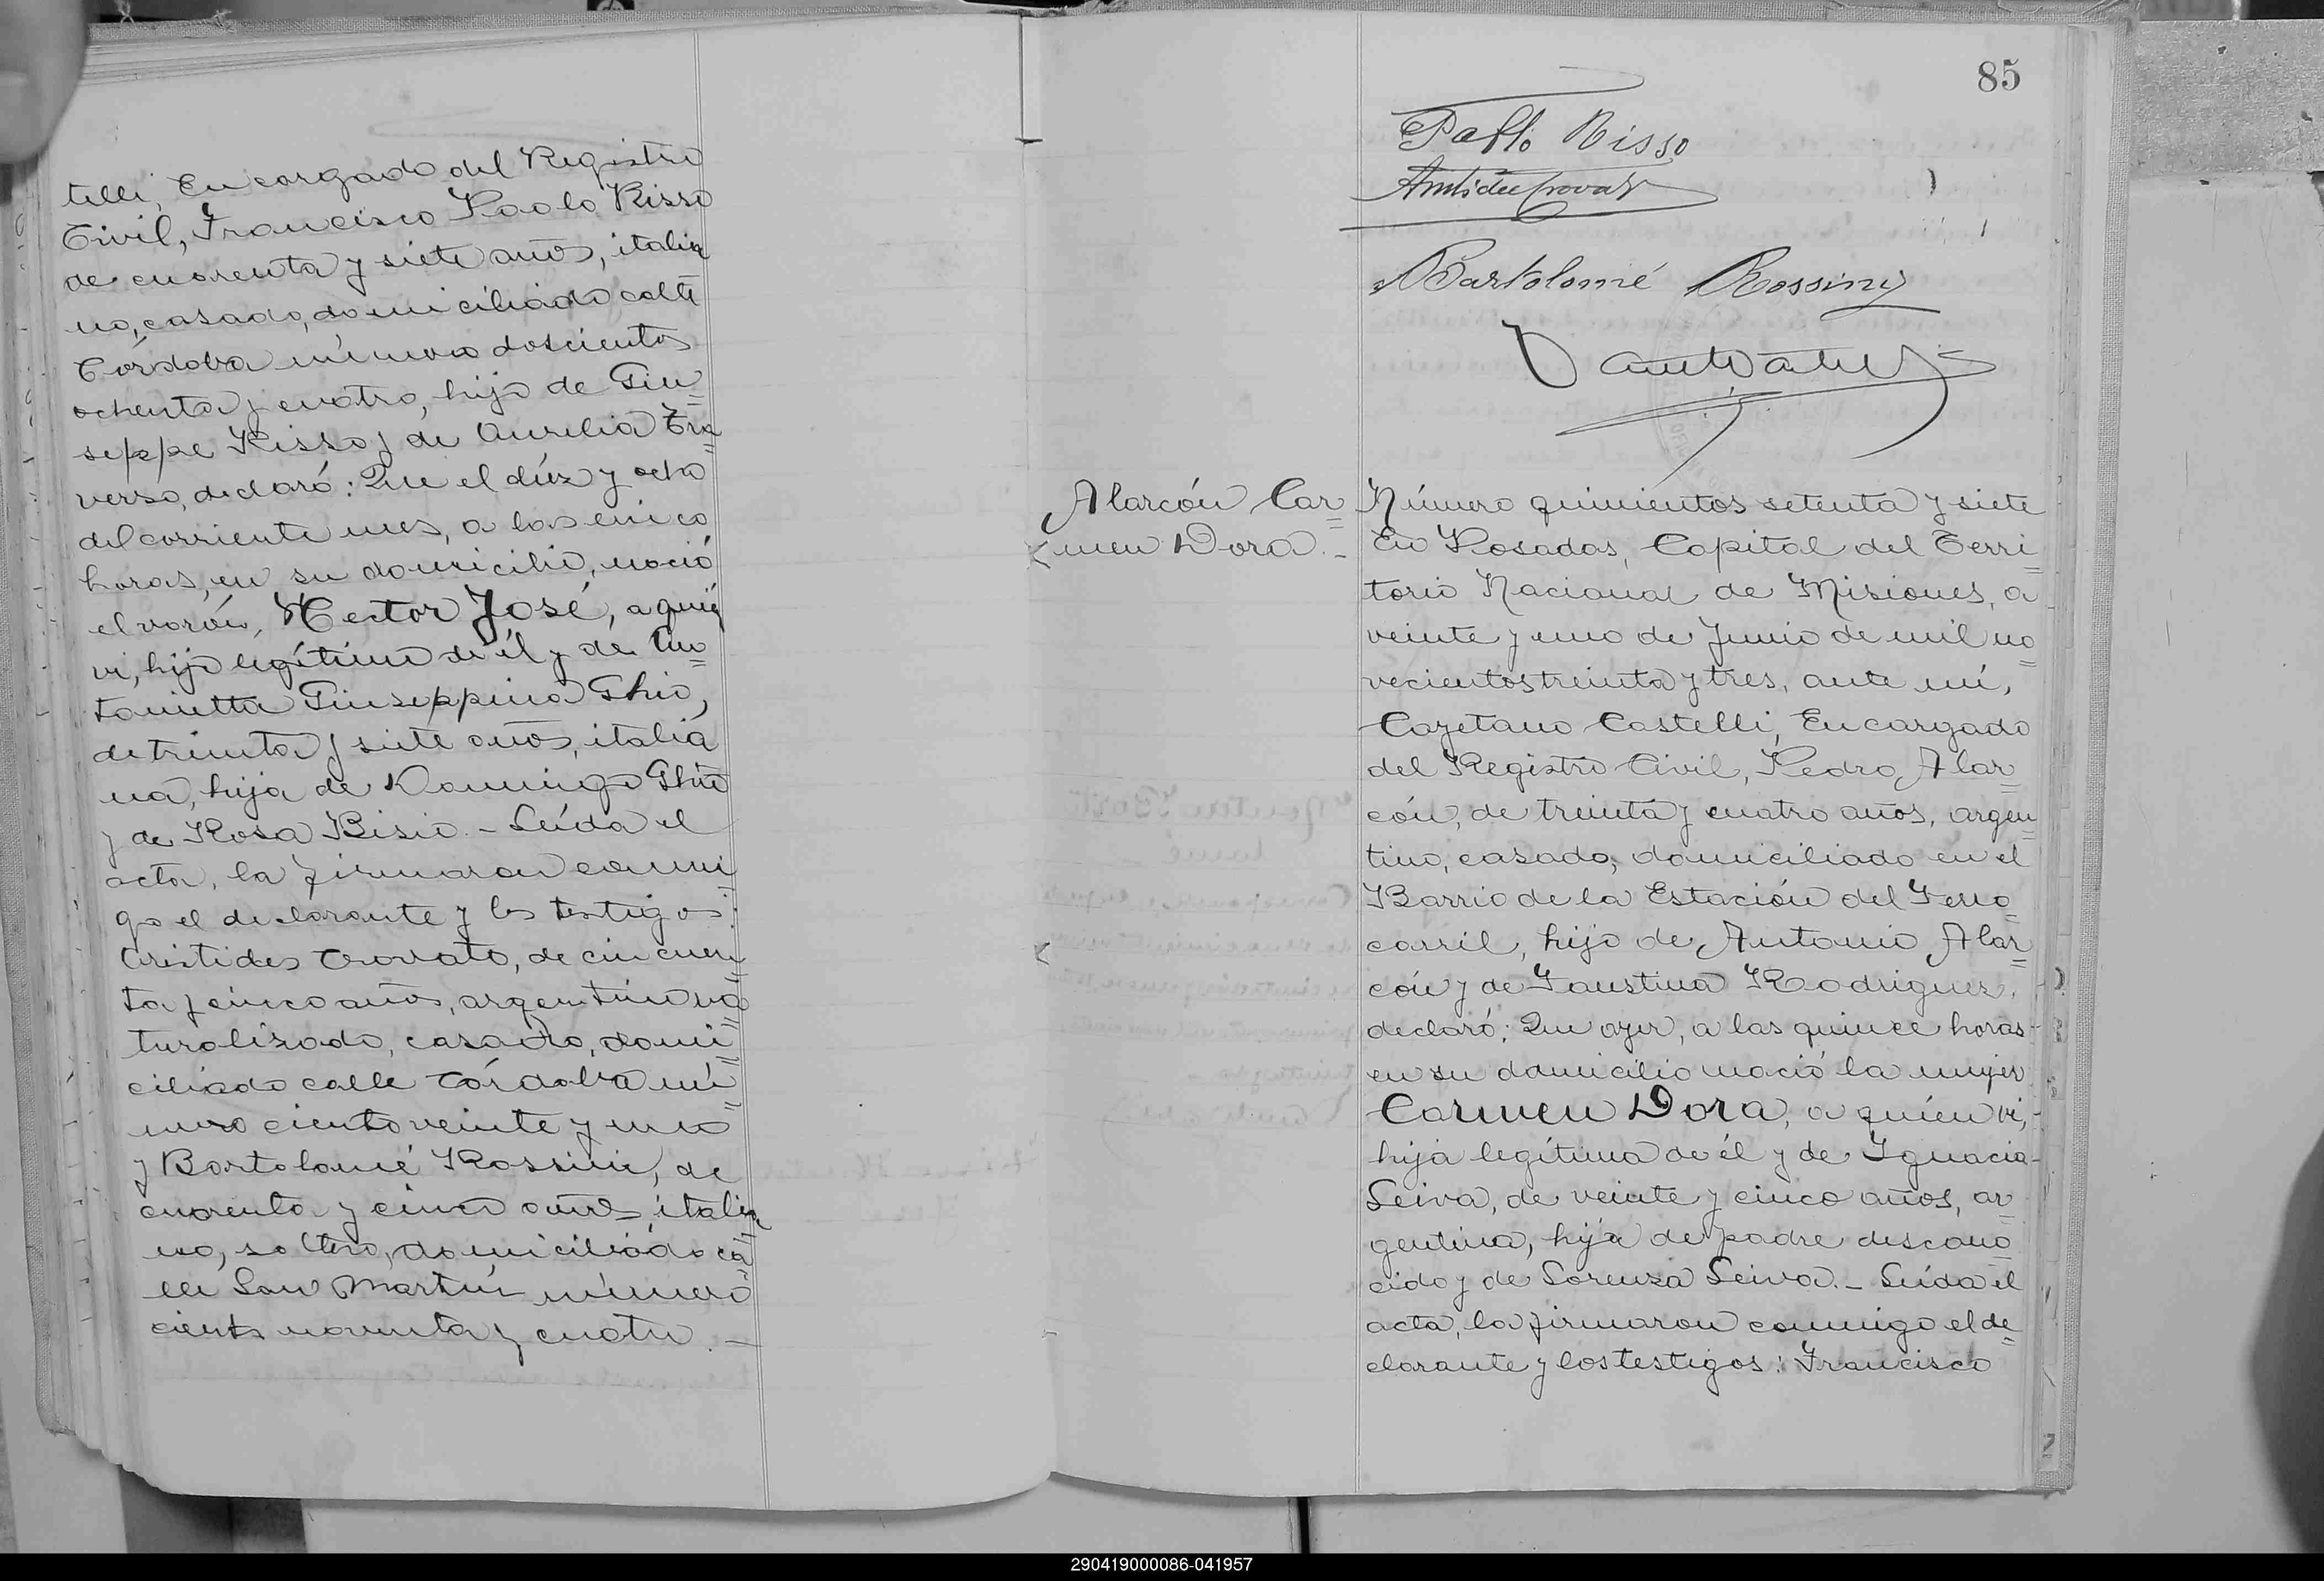 telli, Encargado del Registro
Civil, Francisco Paolo Risso
de cuarenta y siete años, italia
no, casado, domiciliado calle
Córdoba número doscientos
ochenta y cuatro, hijo de Giu=
seppe Risso y de Aurelia Tra=
verso, declaró: Que el diez y ocho
del corriente mes, a las cinco
horas, en su domicilio, nació
el varón, Hector José, a quien
vi, hijo legítimo de él y de An=
tonietta Giuseppina Ghio,
de treinta y siete años, italia
na, hija de Domingo Ghio
y de Rosa Bisio.- Leída el
acta, la firmaron conmi=
go el declarante y los testigos:
Aristides Crovato, de cincuen=
ta y cinco años, argentino na
turalizado, casado, domi=
ciliado calle Córdoba nú=
mero ciento veinte y uno
y Bartolomé Rossini, de
cuarenta y cinco años, italia
no, soltero, domiciliado ca=
lle San Martín número
ciento noventa y cuatro.-
85
Pablo Risso
Bartolomé Rossini
Alarcón Car=
men Dora.-
Número quinientos setenta y siete
En Posadas, Capital del Terri=
torio Nacional de Misiones, a
veinte y uno de Junio de mil no=
vecientos treinta y tres, ante mí,
Cayetano Castelli, Encargado
del Registro Civil, Pedro Alar=
cón, de treinta y cuatro años, argen=
tino, casado, domiciliado en el
Barrio de la Estación del Ferro=
carril, hijo de Antonio Alar=
cón y de Faustina Rodriguez,
declaró: Que ayer, a las quince horas-
en su domicilio nació la mujer
Carmen Dora, a quien vi,-
hija legítima de él y de Ignacia-
Leiva, de veinte y cinco años, ar=
gentina, hija de padre descono=
cido y de Lorenza Leiva.- Leída el
acta, la firmaron conmigo el de=
clarante y los testigos: Francisco
290419000086-041957